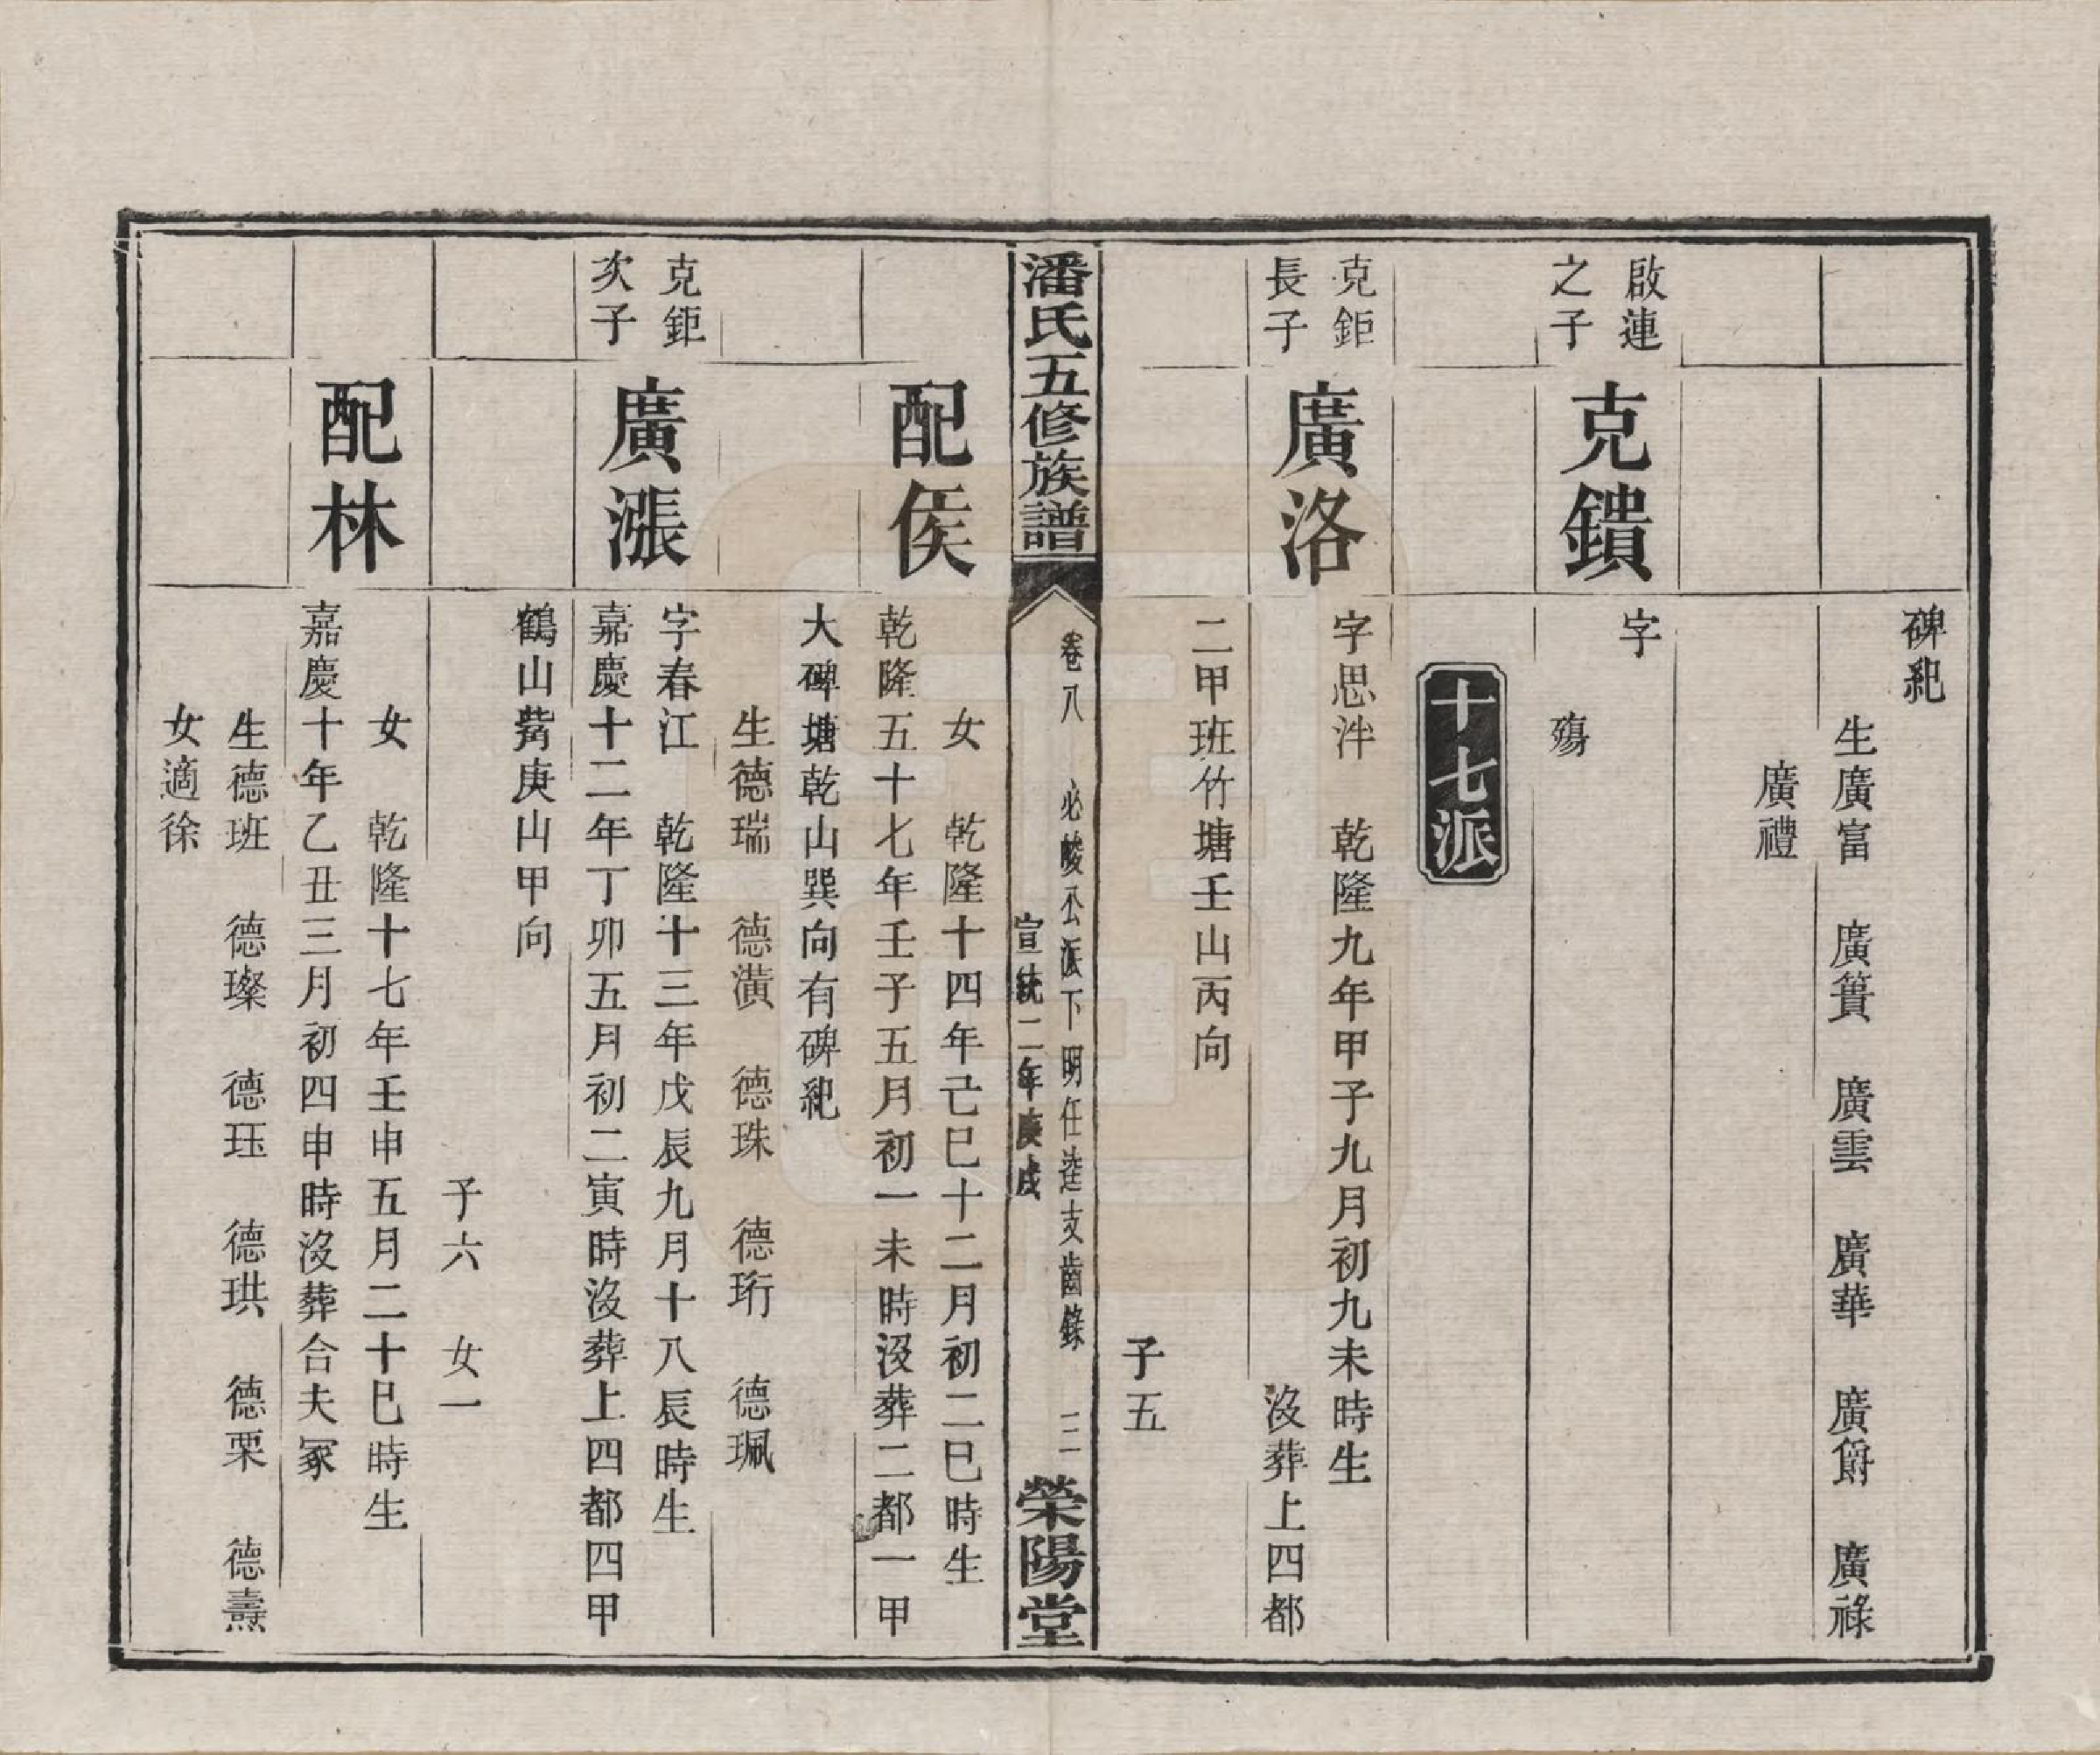 碑紀
生廣富　廣簣　廣雲　廣華　廣爵　廣祿
廣禮
啟連
之子
克鐀
字
殤
十七派
克鉅
長子
廣洛
字思泮　乾隆九年甲子九月初九未時生
沒葬上四都
二甲班竹塘壬山丙向
子五
潘氏五修族譜
卷八　必峻公派下明任達支齒錄　三
宣統二年庚戌
榮陽堂
配侯
女　乾隆十四年己巳十二月初二巳時生
乾隆五十七年壬子五月初一未時沒葬二都一甲
大碑塘乾山巽向有碑紀
生德瑞　德潢　德珠　德珩　德珮
克鉅
次子
廣漲
字春江　乾隆十三年戊辰九月十八辰時生
嘉慶十二年丁卯五月初二寅時沒葬上四都四甲
鶴山觜庚山甲向
子六　女一
配林
女　乾隆十七年壬申五月二十巳時生
嘉慶十年乙丑三月初四申時沒葬合夫冢
生德班　德璨　德玨　德珙　德栗　德燾
女適徐